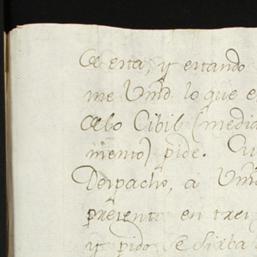 esta, y estando
me Vmd lo que e
Cibil (media
miento) pide. Cu
Despacho, a Vm
presento en trei
y pido se sirba